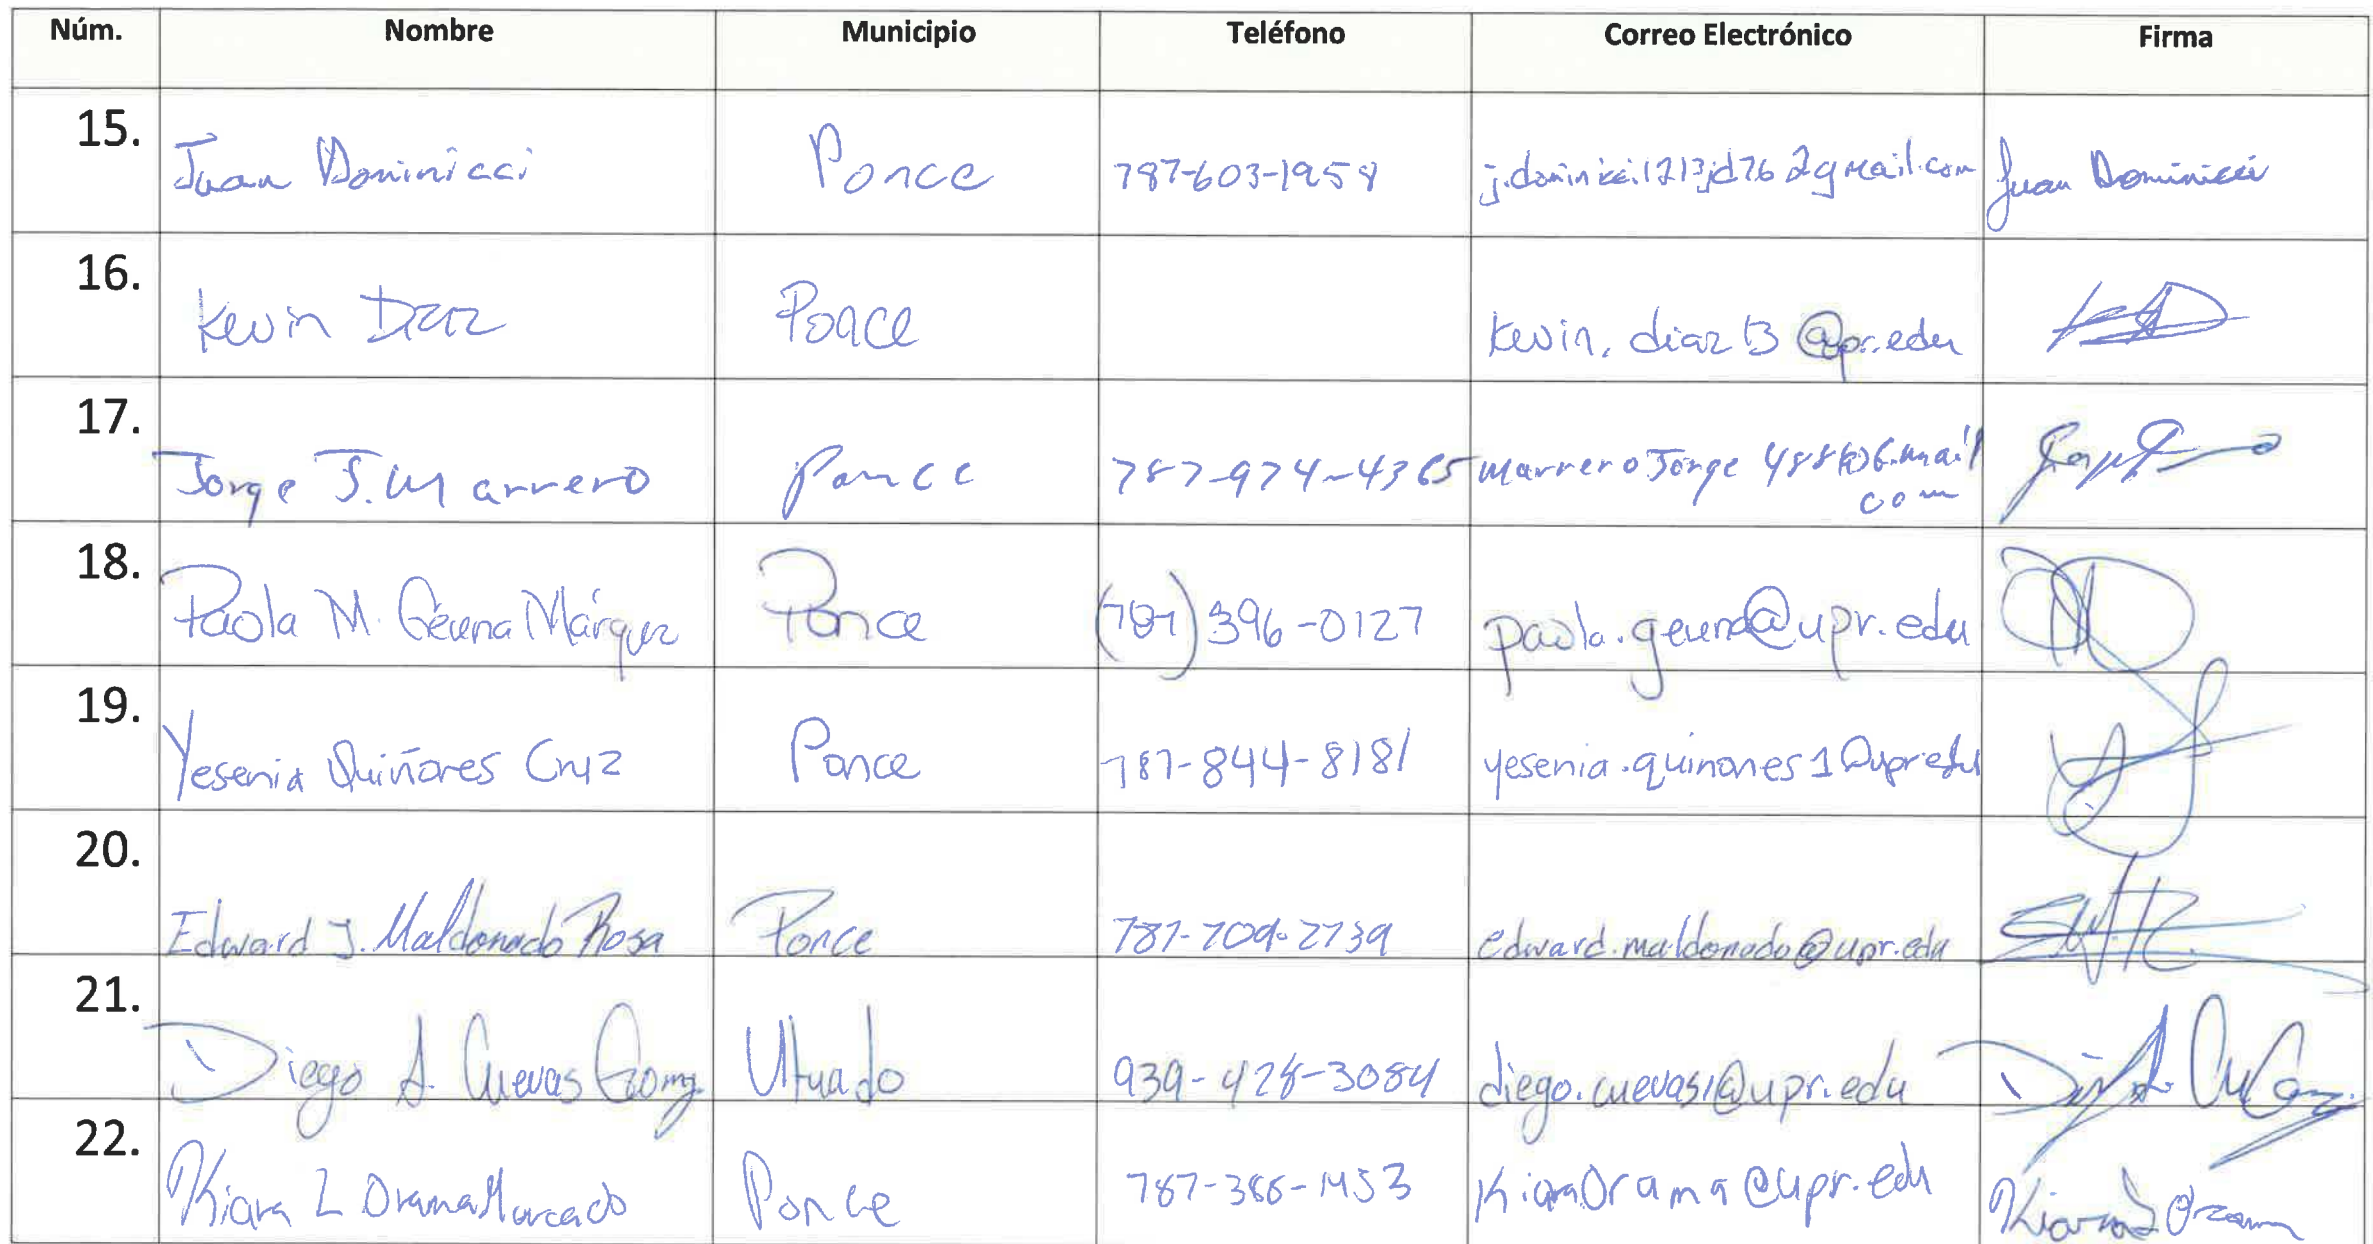 Núm. Nombre Municipio Teléfono Correo Electrónico Firma
15. Juan Dominicci Ponce 787-603-1958 Juan Dominicci
16. Kevin Diaz Ponce kevin.diaz13@upr.edu
17. Jorge J. Marrero Ponce 787-974-4365 marreroJorge
com
18. Paola M. Gerena Márquez Ponce (787) 396-0127 paola.gerena@upr.edu
19. Yesenia Quiñones Cruz Ponce 787-844-8181 yesenia.quinones1@upr.edu
20. Edward J. Maldonado Rosa Ponce 787-709-2739 edward.maldonado@upr.edu
21. Diego A. Cuevas Gonz. Utuado 939-428-3084 diego.cuevas1@upr.edu
22. Kiara L Orama Mercado Ponce KiaraOrama@upr.edu Kiara L Orama